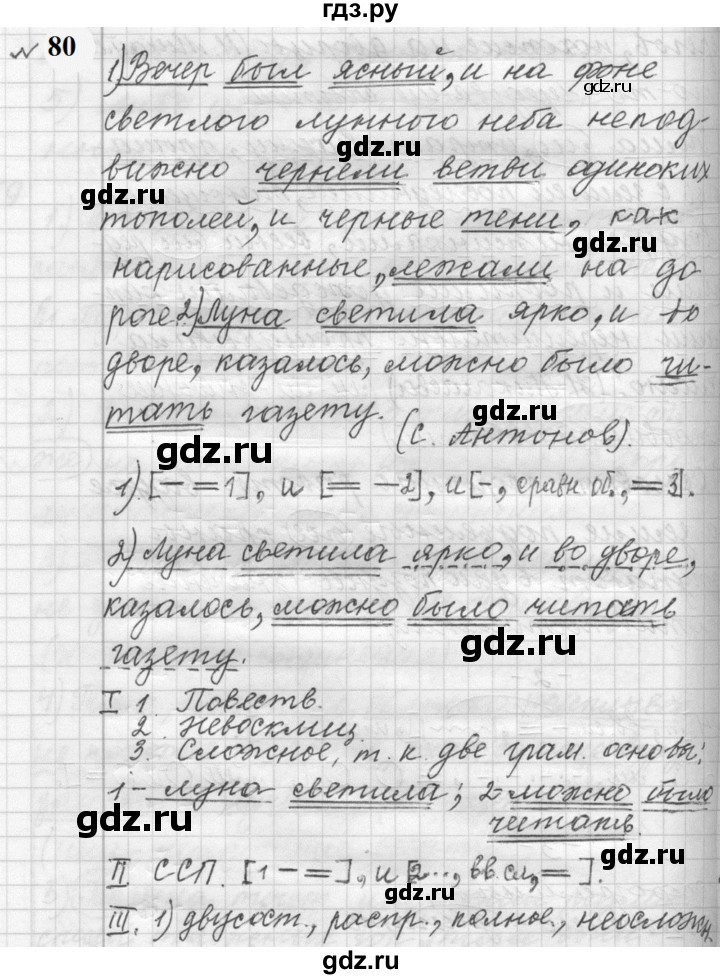 гдз.ру
№ 80
1) Вечер был ясный, и на фоне
светлого лунного неба непод-
вижно чернели ветви одиноких
тополей, и черные тени, как
нарисованные, лежали на до
роге. 2) Луна светила ярко, и во
дворе, казалось, можно было чи-
тать газету.
(С. Антонов).
1) [- = 1], и [= - 2], и [-, сравн об., = 3].
2) Луна светила ярко, и во дворе,
казалось, можно было читать
газету.
I 1. Повеств.
2. Невосклиц.
3. Сложное, т. к. две грам. основы:
1 - луна светила; 2 - можно было
читать.
II ССП. [1 - =], и [2..., вв.сл, = ].
III. 1) двусост., распр., полное., неосложн.
gdz.ru
gdz.ru
gdz.ru
gdz.ru
gdz.ru
gdz.ru
gdz.ru
gdz.ru
gdz.ru
gdz.ru
gdz.ru
gdz.ru
gdz.ru